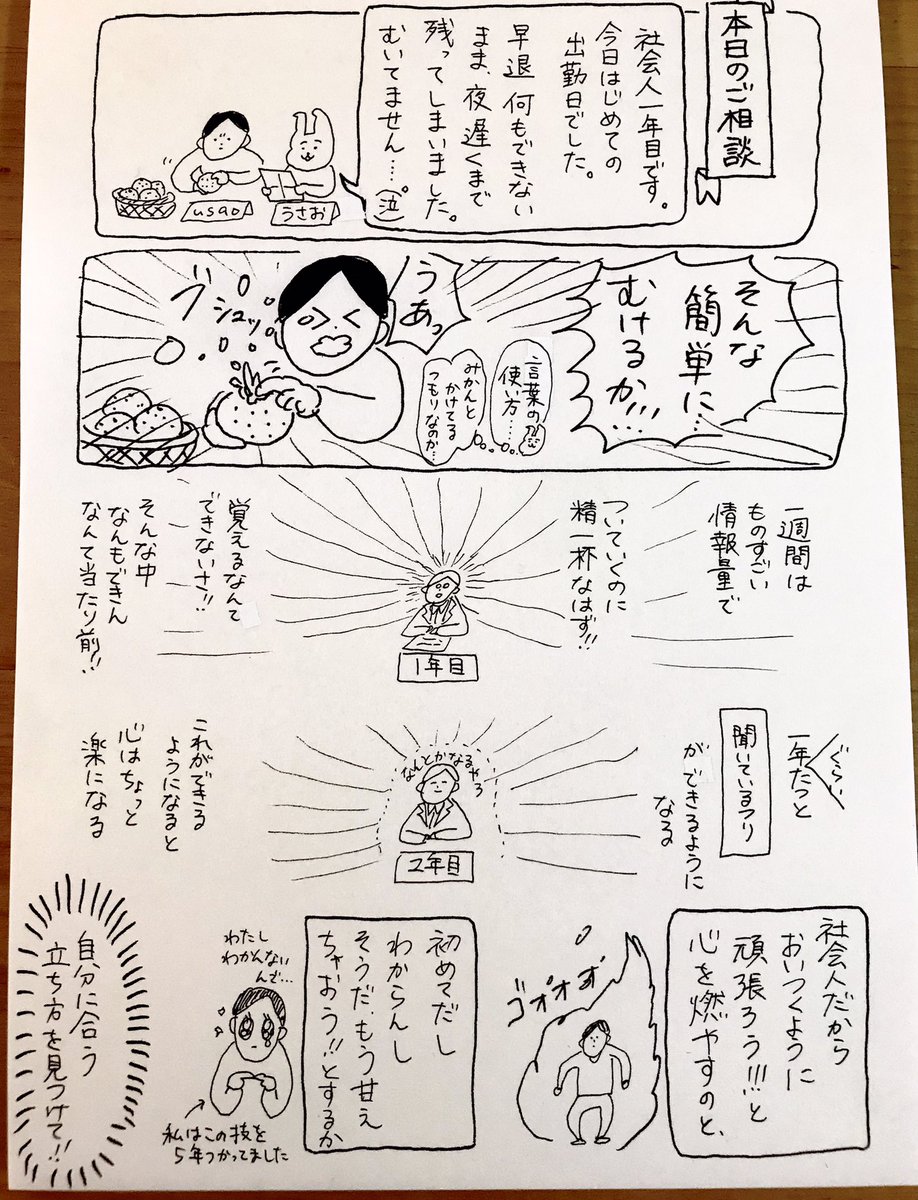 本日のご相談
社会人一年目です。
今日はじめての
出勤日でした。
早退 何もできない
まま、夜遅くまで
残ってしまいました。
むいてません…。(泣)
うさお
usao
そんな
簡単に…
むけるか!!!
うあっ
ブシュッ
言葉の
使い方……
みかんと
かけてる
つもりなのか…
一週間は
ものすごい
情報量で
ついていくのに
精一杯なはず!!
覚えるなんて
できないさ!!
そんな中
なんもできん
なんて当たり前!!
1年目
ぐらい
一年たつと
聞いているフリ
が できるように
なる
なんとかなるやろ
これができる
ようになると
心はちょっと
楽になる
2年目
社会人だから
おいつくように
頑張ろう!!!と
心を燃やすのと、
ゴォオオオ
初めてだし
わからんし
そうだ、もう甘え
ちゃおう!!とするか
わたし
わかんない
んで…
私はこの技を
5年つかってました
自分に合う
立ち方を見つけて!!